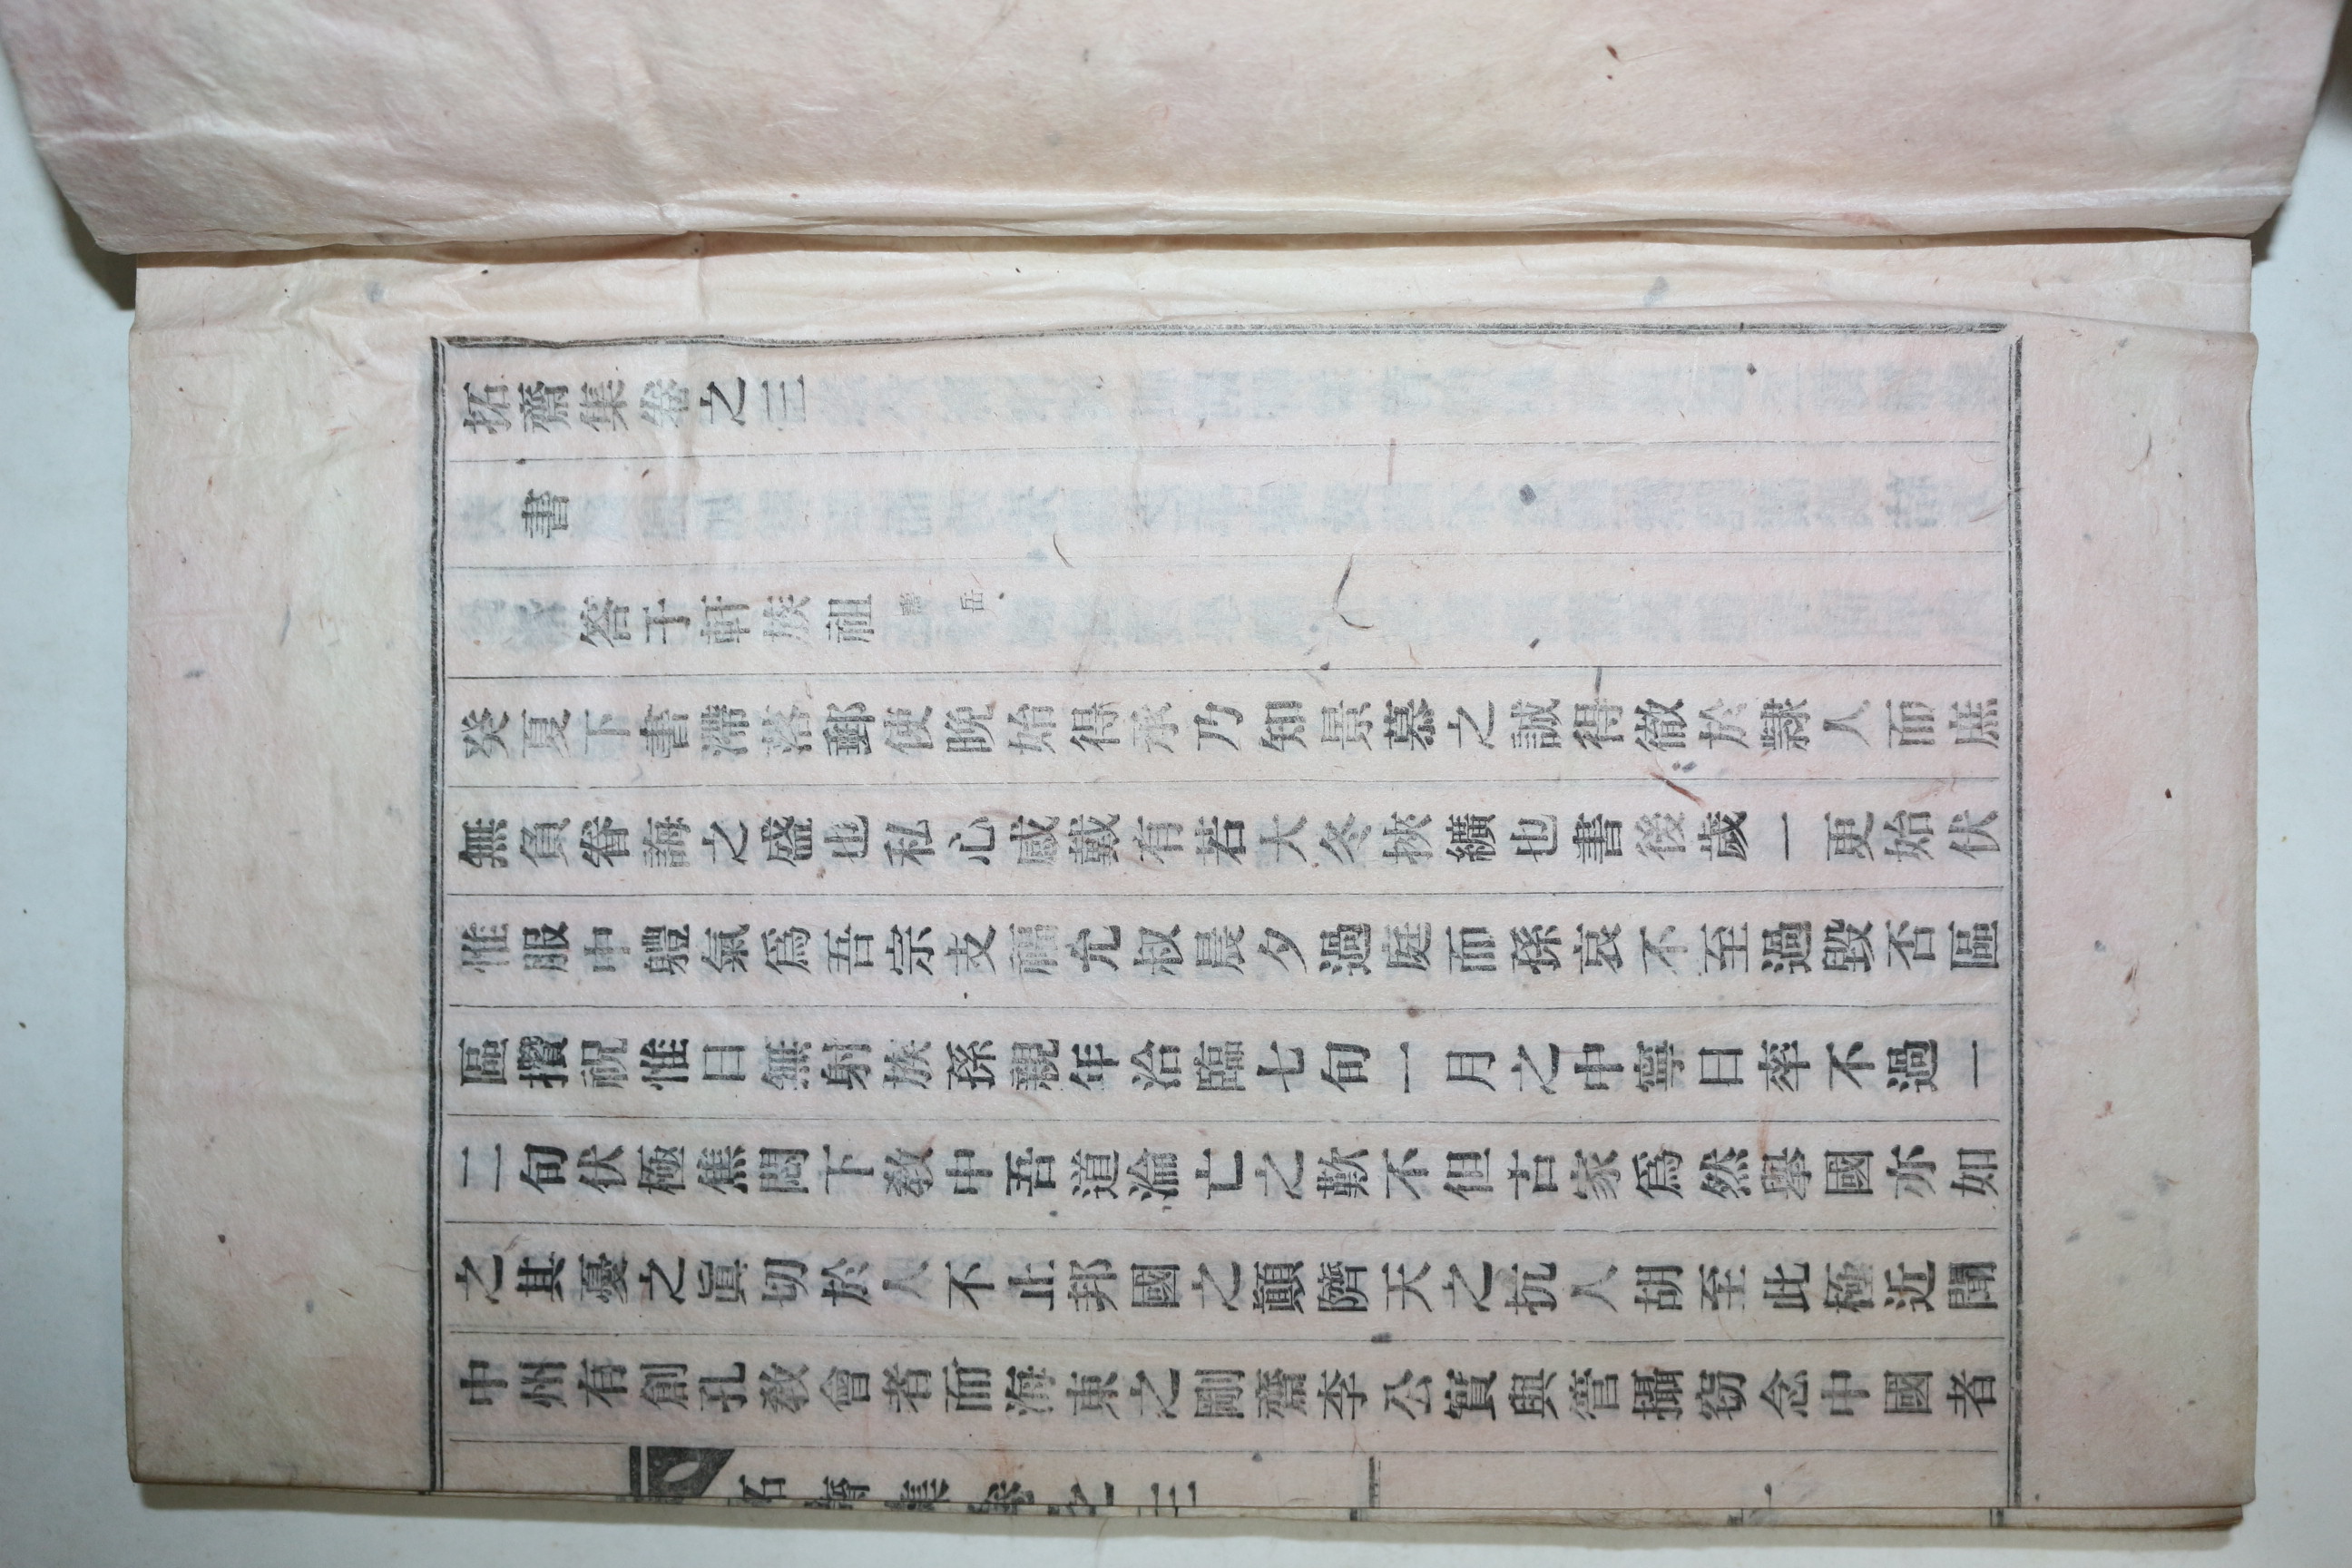 拓齋集卷之三
書
答于軒族祖 岳
癸夏下書滯落郵使晩始得承乃知景慕之誠得徹於隷人而庶
無負眷誨之盛也私心感戴有若大冬挾纊也書後歲一更始伏
惟服中軆氣爲吾宗支福允叔晨夕過庭而孫哀不至過毀否區
區攢祝惟日無射族孫親年洽臨七旬一月之中寧日率不過一
二旬伏極焦悶下敎中吾道淪亡之歎不但古家爲然擧國亦如
之其憂之眞切於人不止邦國之顚隮天之抗人胡至此極近聞
中州有創孔敎會者而海東之剛齋李公實與管攝窃念中國者
拓齋集卷之三
一